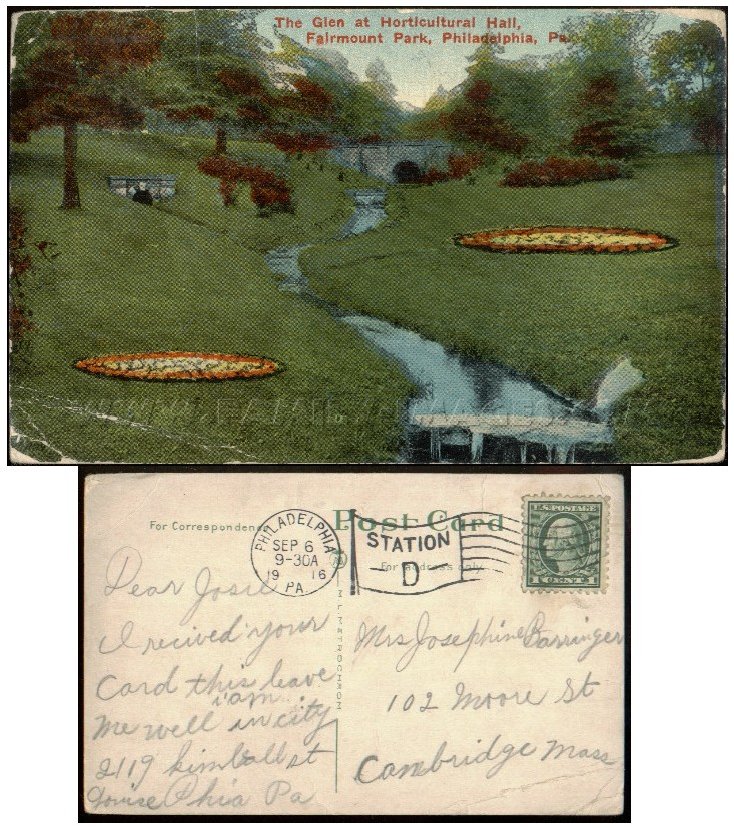 The Glen at Horticultural Hall,
Fairmount Park, Philadelphia, Pa.
For Correspondence
Post Card
For address only
PHILADELPHIA
SEP 6
9-30A
19 16
PA.
STATION
D
U.S. POSTAGE
1 CENT 1
METROCHROM
Dear Josie
I recived your
Card this leave
i am
me well in city
2119 kimball st
Louise Phia Pa
Mrs Josephine Barringer
102 Moore St
Cambridge Mass